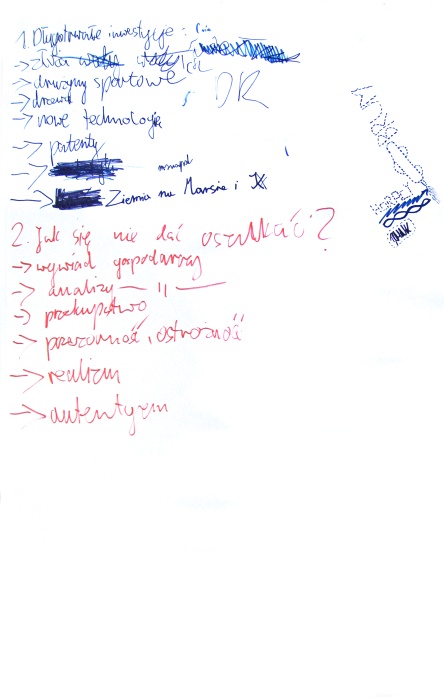 1. Długotrwałe inwestycje:
→ złota
→ drużyny sportowe
→ drzewa
→ nowe technologie
OK
→ patenty
→
→ Ziemia na Marsie i
2. Jak się nie dać oszukać?
→ wywiad gospodarczy
→ analizy — 11 —
→ przekupstwo
→ przezorność, ostrożność
→ realizm
→ autentyzm